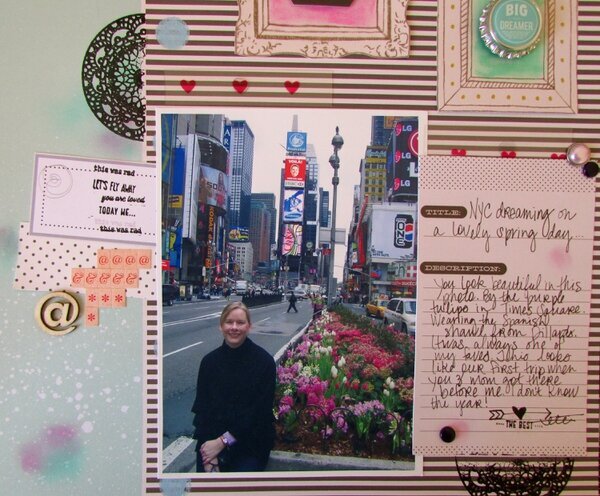 BIG
DREAMER
this was rad
LET'S FLY AWAY
you are loved
TODAY WE...
this was rad
@ @ @ @
& & & & &
* * *
@
LG
LG
LG
PEPSI
TITLE:
NYC dreaming on
a lovely spring day
DESCRIPTION:
You look beautiful in this
photo. By the purple
tulips in Times Square.
Wearing the Spanish
shawl from
It was always one of
my faves. This looks
like our first trip when
you & mom got there
before me. I don't know
the year!
THE BEST